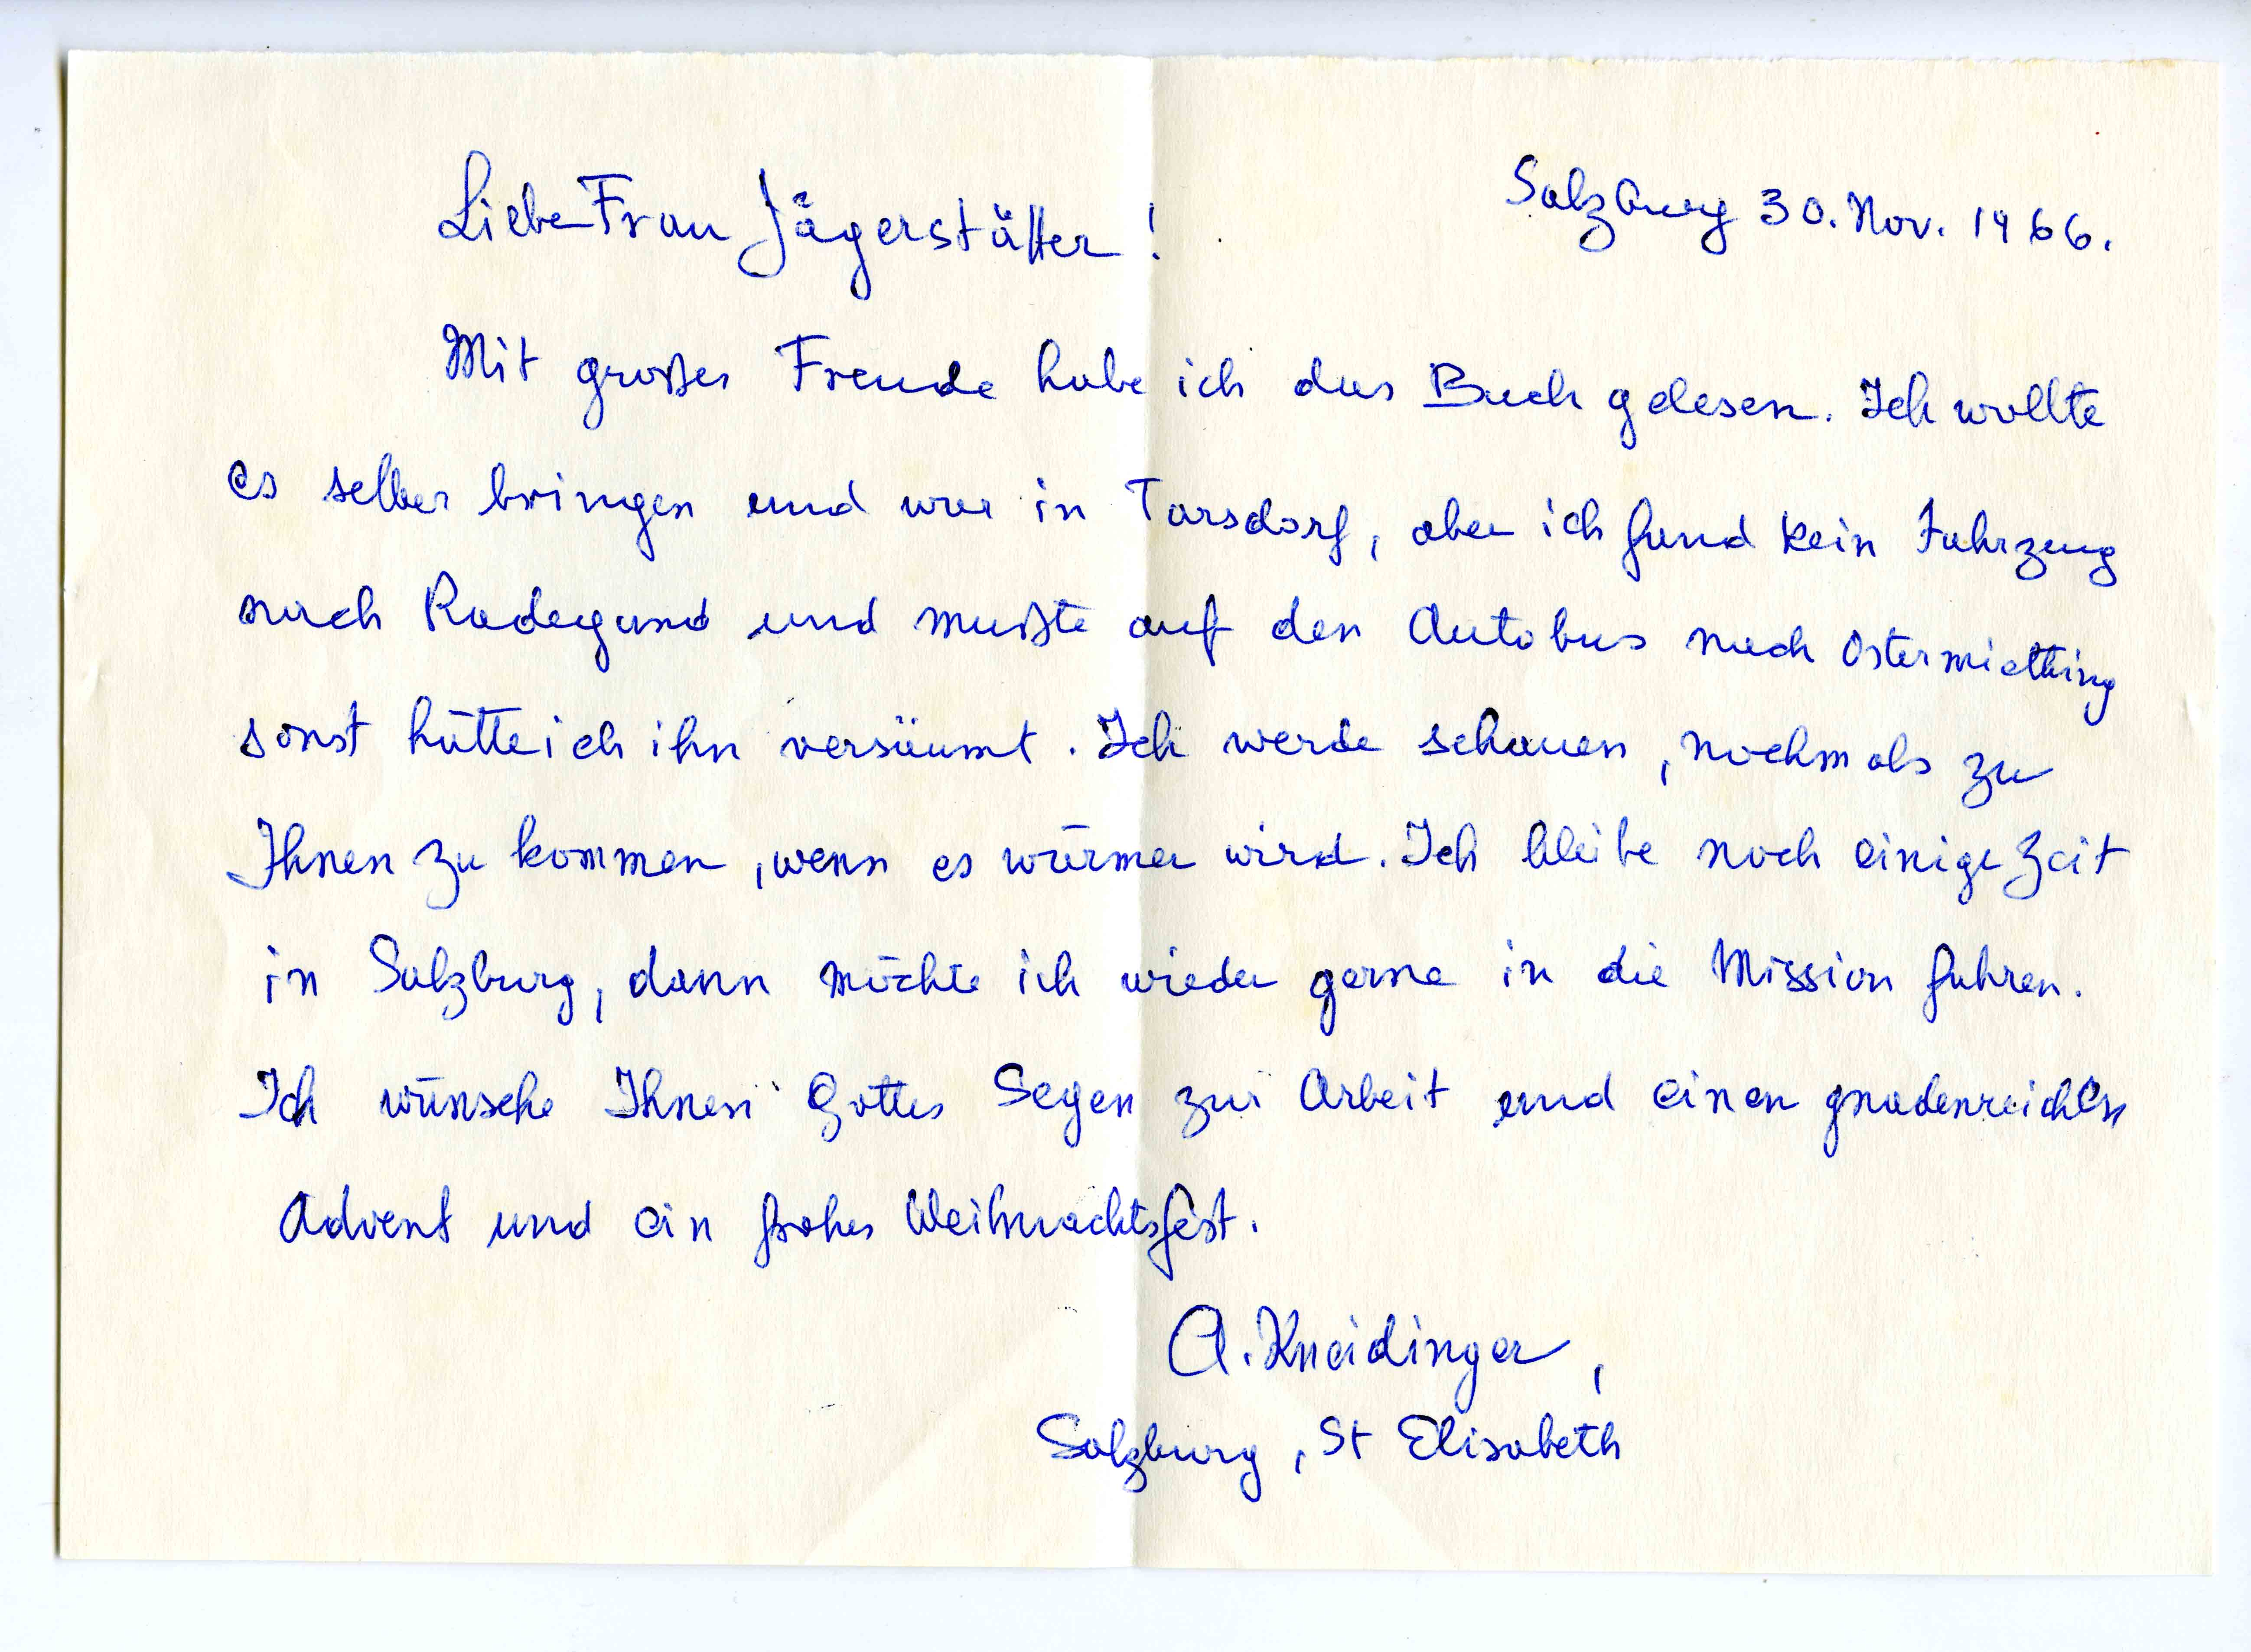 Salzburg 30. Nov. 1966.
Liebe Frau Jägerstätter!
Mit großer Freude habe ich das Buch gelesen. Ich wollte
es selber bringen und war in Tarsdorf, aber ich fand kein Fahrzeug
nach Radegund und mußte auf den Autobus nach Ostermiething
sonst hätte ich ihn versäumt. Ich werde schauen, nochmals zu
Ihnen zu kommen, wenn es wärmer wird. Ich bleibe noch einige Zeit
in Salzburg, dann möchte ich wieder gerne in die Mission fahren.
Ich wünsche Ihnen Gottes Segen zur Arbeit und einen gnadenreichen
Advent und ein frohes Weihnachtsfest.
A. Kneidinger,
Salzburg, St Elisabeth